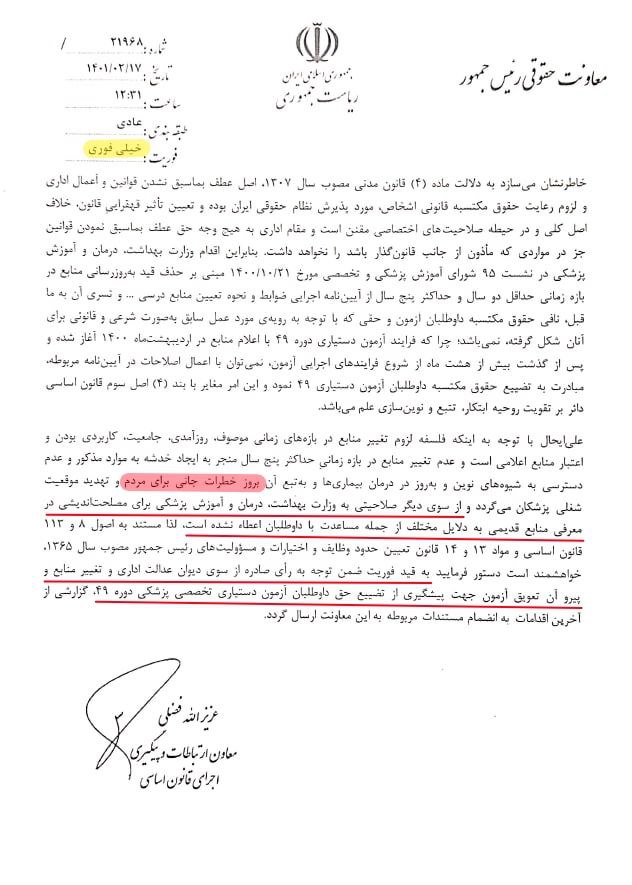 شماره: ۲۱۹۶۸ /
تاریخ: ۱۴۰۱/۰۲/۱۷
ساعت: ۱۲:۳۱
طبقه بندی: عادی
فوریت: خیلی فوری
جمهوری اسلامی ایران
ریاست جمهوری
معاونت حقوقی رئیس جمهور
خاطرنشان می‌سازد به دلالت ماده (۴) قانون مدنی مصوب سال ۱۳۰۷، اصل عطف بماسبق نشدن قوانین و أعمال اداری
و لزوم رعایت حقوق مکتسبه قانونی اشخاص، مورد پذیرش نظام حقوقی ایران بوده و تعیین تأثیر قهقرایی قانون، خلاف
اصل کلی و در حیطه صلاحیت‌های اختصاصی مقنن است و مقام اداری به هیچ وجه حق عطف بماسبق نمودن قوانین
جز در مواردی که مأذون از جانب قانون‌گذار باشد را نخواهد داشت. بنابراین اقدام وزارت بهداشت، درمان و آموزش
پزشکی در نشست ۹۵ شورای آموزش پزشکی و تخصصی مورخ ۱۴۰۰/۱۰/۲۱ مبنی بر حذف قید به‌روزرسانی منابع در
بازه زمانی حداقل دو سال و حداکثر پنج سال از آیین‌نامه اجرایی ضوابط و نحوه تعیین منابع درسی ... و تسری آن به ما
قبل، نافی حقوق مکتسبه داوطلبان آزمون و حقی که با توجه به رویه‌ی مورد عمل سابق به‌صورت شرعی و قانونی برای
آنان شکل گرفته، نمی‌باشد؛ چرا که فرایند آزمون دستیاری دوره ۴۹ با اعلام منابع در اردیبهشت‌ماه ۱۴۰۰ آغاز شده و
پس از گذشت بیش از هشت ماه از شروع فرایندهای اجرایی آزمون، نمی‌توان با اعمال اصلاحات در آیین‌نامه مربوطه،
مبادرت به تضییع حقوق مکتسبه داوطلبان آزمون دستیاری ۴۹ نمود و این امر مغایر با بند (۴) اصل سوم قانون اساسی
دائر بر تقویت روحیه ابتکار، تتبع و نوین‌سازی علم می‌باشد.
علی‌ایحال با توجه به اینکه فلسفه لزوم تغییر منابع در بازه‌های زمانی موصوف، روزآمدی، جامعیت، کاربردی بودن و
اعتبار منابع اعلامی است و عدم تغییر منابع در بازه زمانی حداکثر پنج سال منجر به ایجاد خدشه به موارد مذکور و عدم
دسترسی به شیوه‌های نوین و به‌روز در درمان بیماری‌ها و به‌تبع آن بروز خطرات جانی برای مردم و تهدید موقعیت
شغلی پزشکان می‌گردد و از سوی دیگر صلاحیتی به وزارت بهداشت، درمان و آموزش پزشکی برای مصلحت‌اندیشی در
معرفی منابع قدیمی به دلایل مختلف از جمله مساعدت با داوطلبان اعطاء نشده است، لذا مستند به اصول ۸ و ۱۱۳
قانون اساسی و مواد ۱۳ و ۱۴ قانون تعیین حدود وظایف و اختیارات و مسؤولیت‌های رئیس جمهور مصوب سال ۱۳۶۵،
خواهشمند است دستور فرمایید به قید فوریت ضمن توجه به رأی صادره از سوی دیوان عدالت اداری و تغییر منابع و
پیرو آن تعویق آزمون جهت پیشگیری از تضییع حق داوطلبان آزمون دستیاری تخصصی پزشکی دوره ۴۹، گزارشی از
آخرین اقدامات به انضمام مستندات مربوطه به این معاونت ارسال گردد.
عزیزالله فضلی
معاون ارتباطات و پیگیری
اجرای قانون اساسی